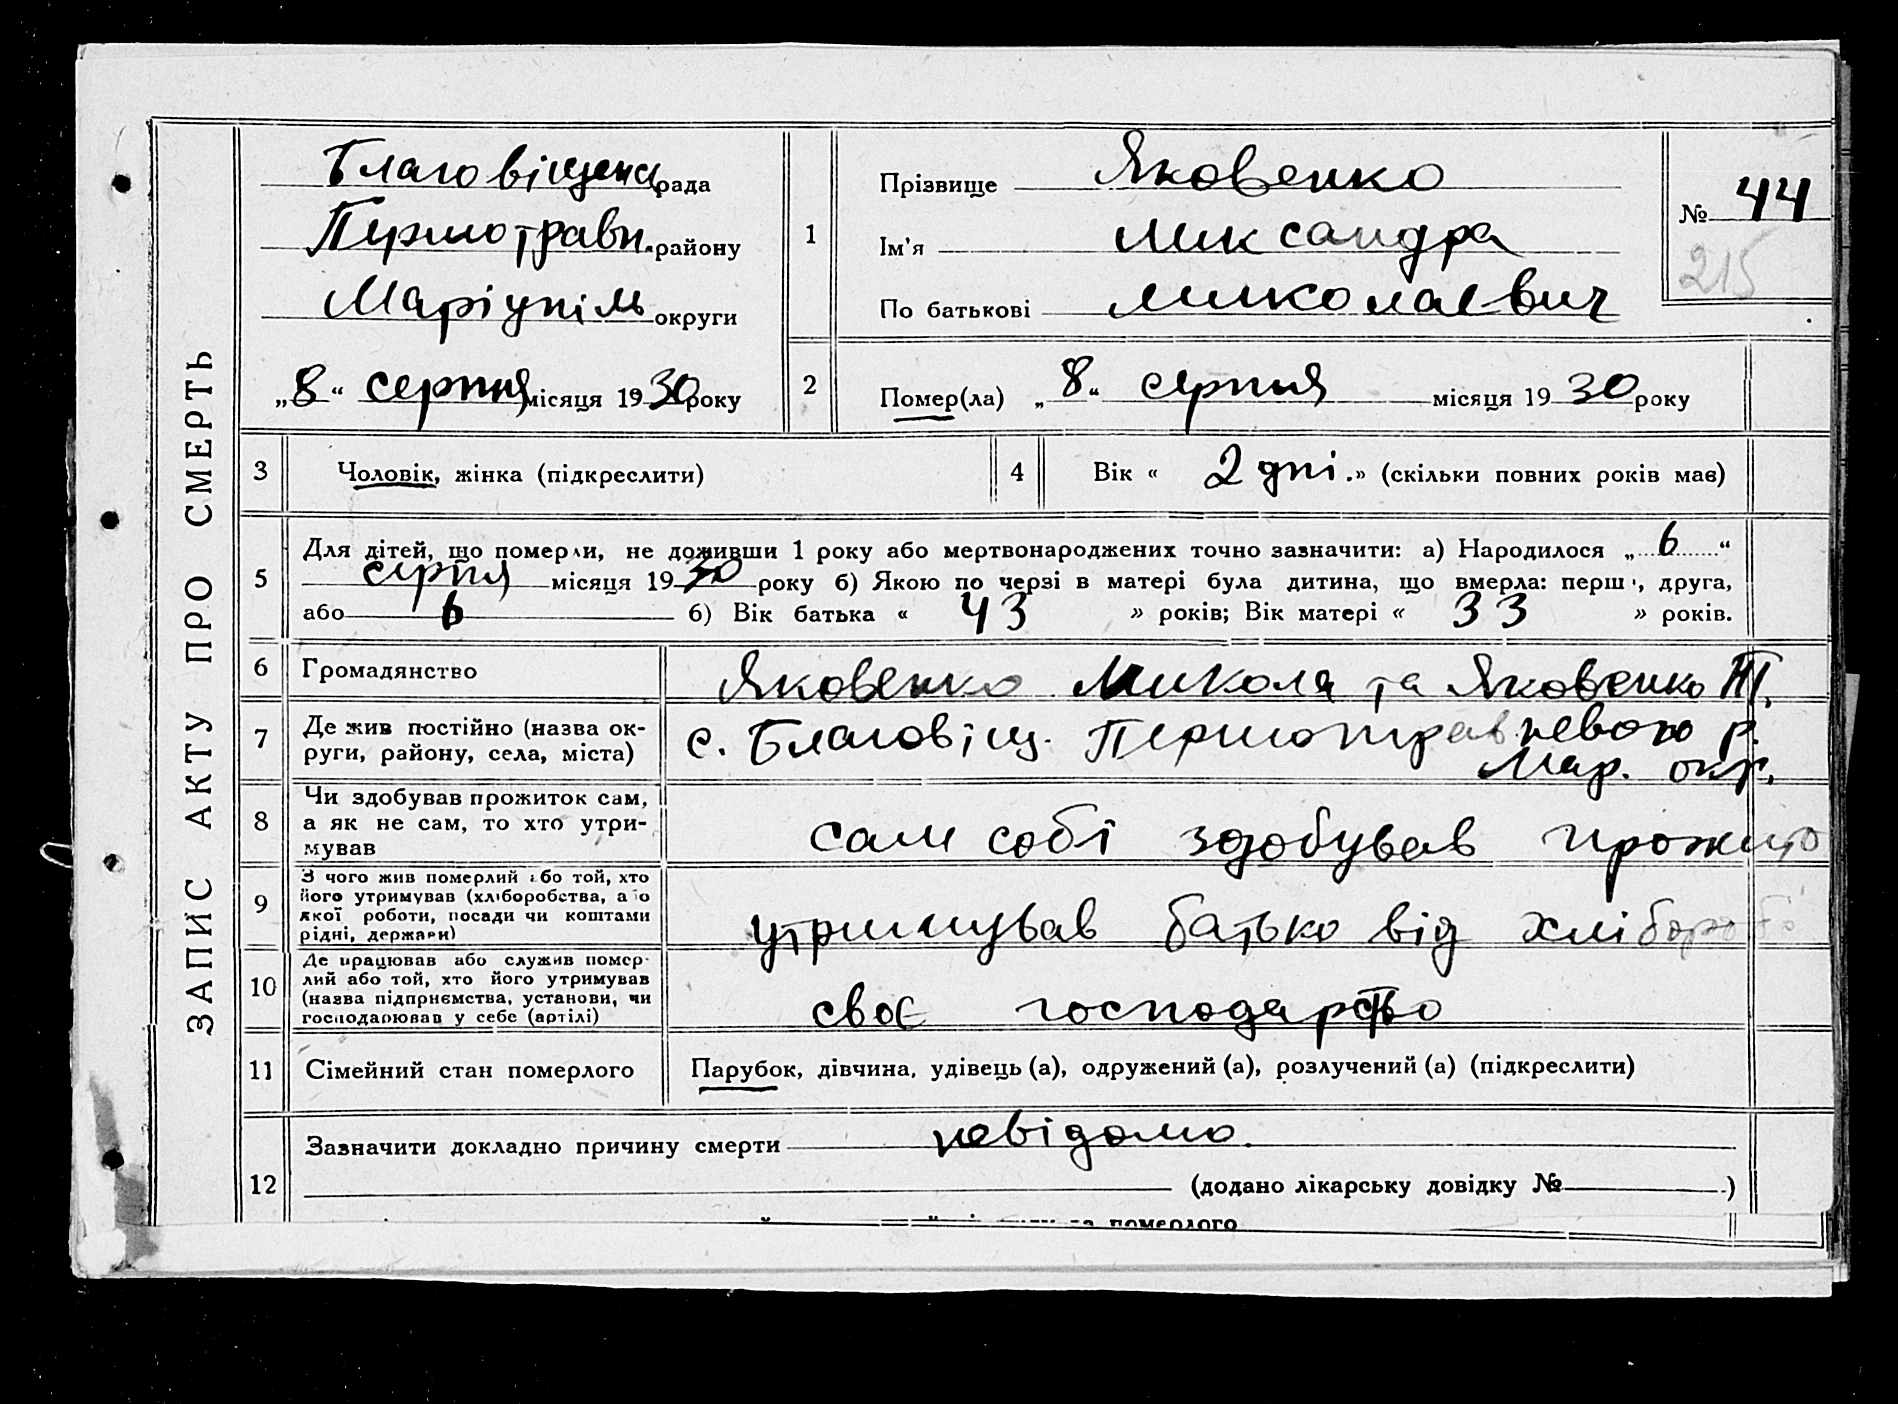 ЗАПИС АКТУ ПРО СМЕРТЬ
Благовіщенс рада
Першотравн. району
Маріупіль округи
„8“ серпня місяця 1930 року
1
Прізвище Яковенко
Ім'я Миксандра
По батькові Миколаевич
№ 44
215
2
Помер(ла) „8“ серпня місяця 1930 року
3
Чоловік, жінка (підкреслити)
4
Вік « 2 дні.» (скільки повних років має)
5
Для дітей, що померли, не доживши 1 року або мертвонароджених точно зазначити: а) Народилося „6“
серпня місяця 1930 року б) Якою по черзі в матері була дитина, що вмерла: перш , друга,
або 6 б) Вік батька « 43 » років; Вік матері « 33 » років.
6
Громадянство
Яковенко Микола та Яковенко Т.
7
Де жив постійно (назва ок-
руги, району, села, міста)
с. Благовіщ. Першотравневого р.
Мар. окр.
8
Чи здобував прожиток сам,
а як не сам, то хто утри-
мував
сам собі здобував прожито
9
З чого жив померлий або той, хто
його утримував (хліборобства, або
якої роботи, посади чи коштами
рідні, держави)
утримував батько від хлібороб
10
Де працював або служив помер-
лий або той, хто його утримував
(назва підприємства, установи, чи
господарював у себе (артілі)
своє господарство
11
Сімейний стан померлого
Парубок, дівчина, удівець (а), одружений (а), розлучений (а) (підкреслити)
12
Зазначити докладно причину смерти невідомо.
(додано лікарську довідку № )
померлого